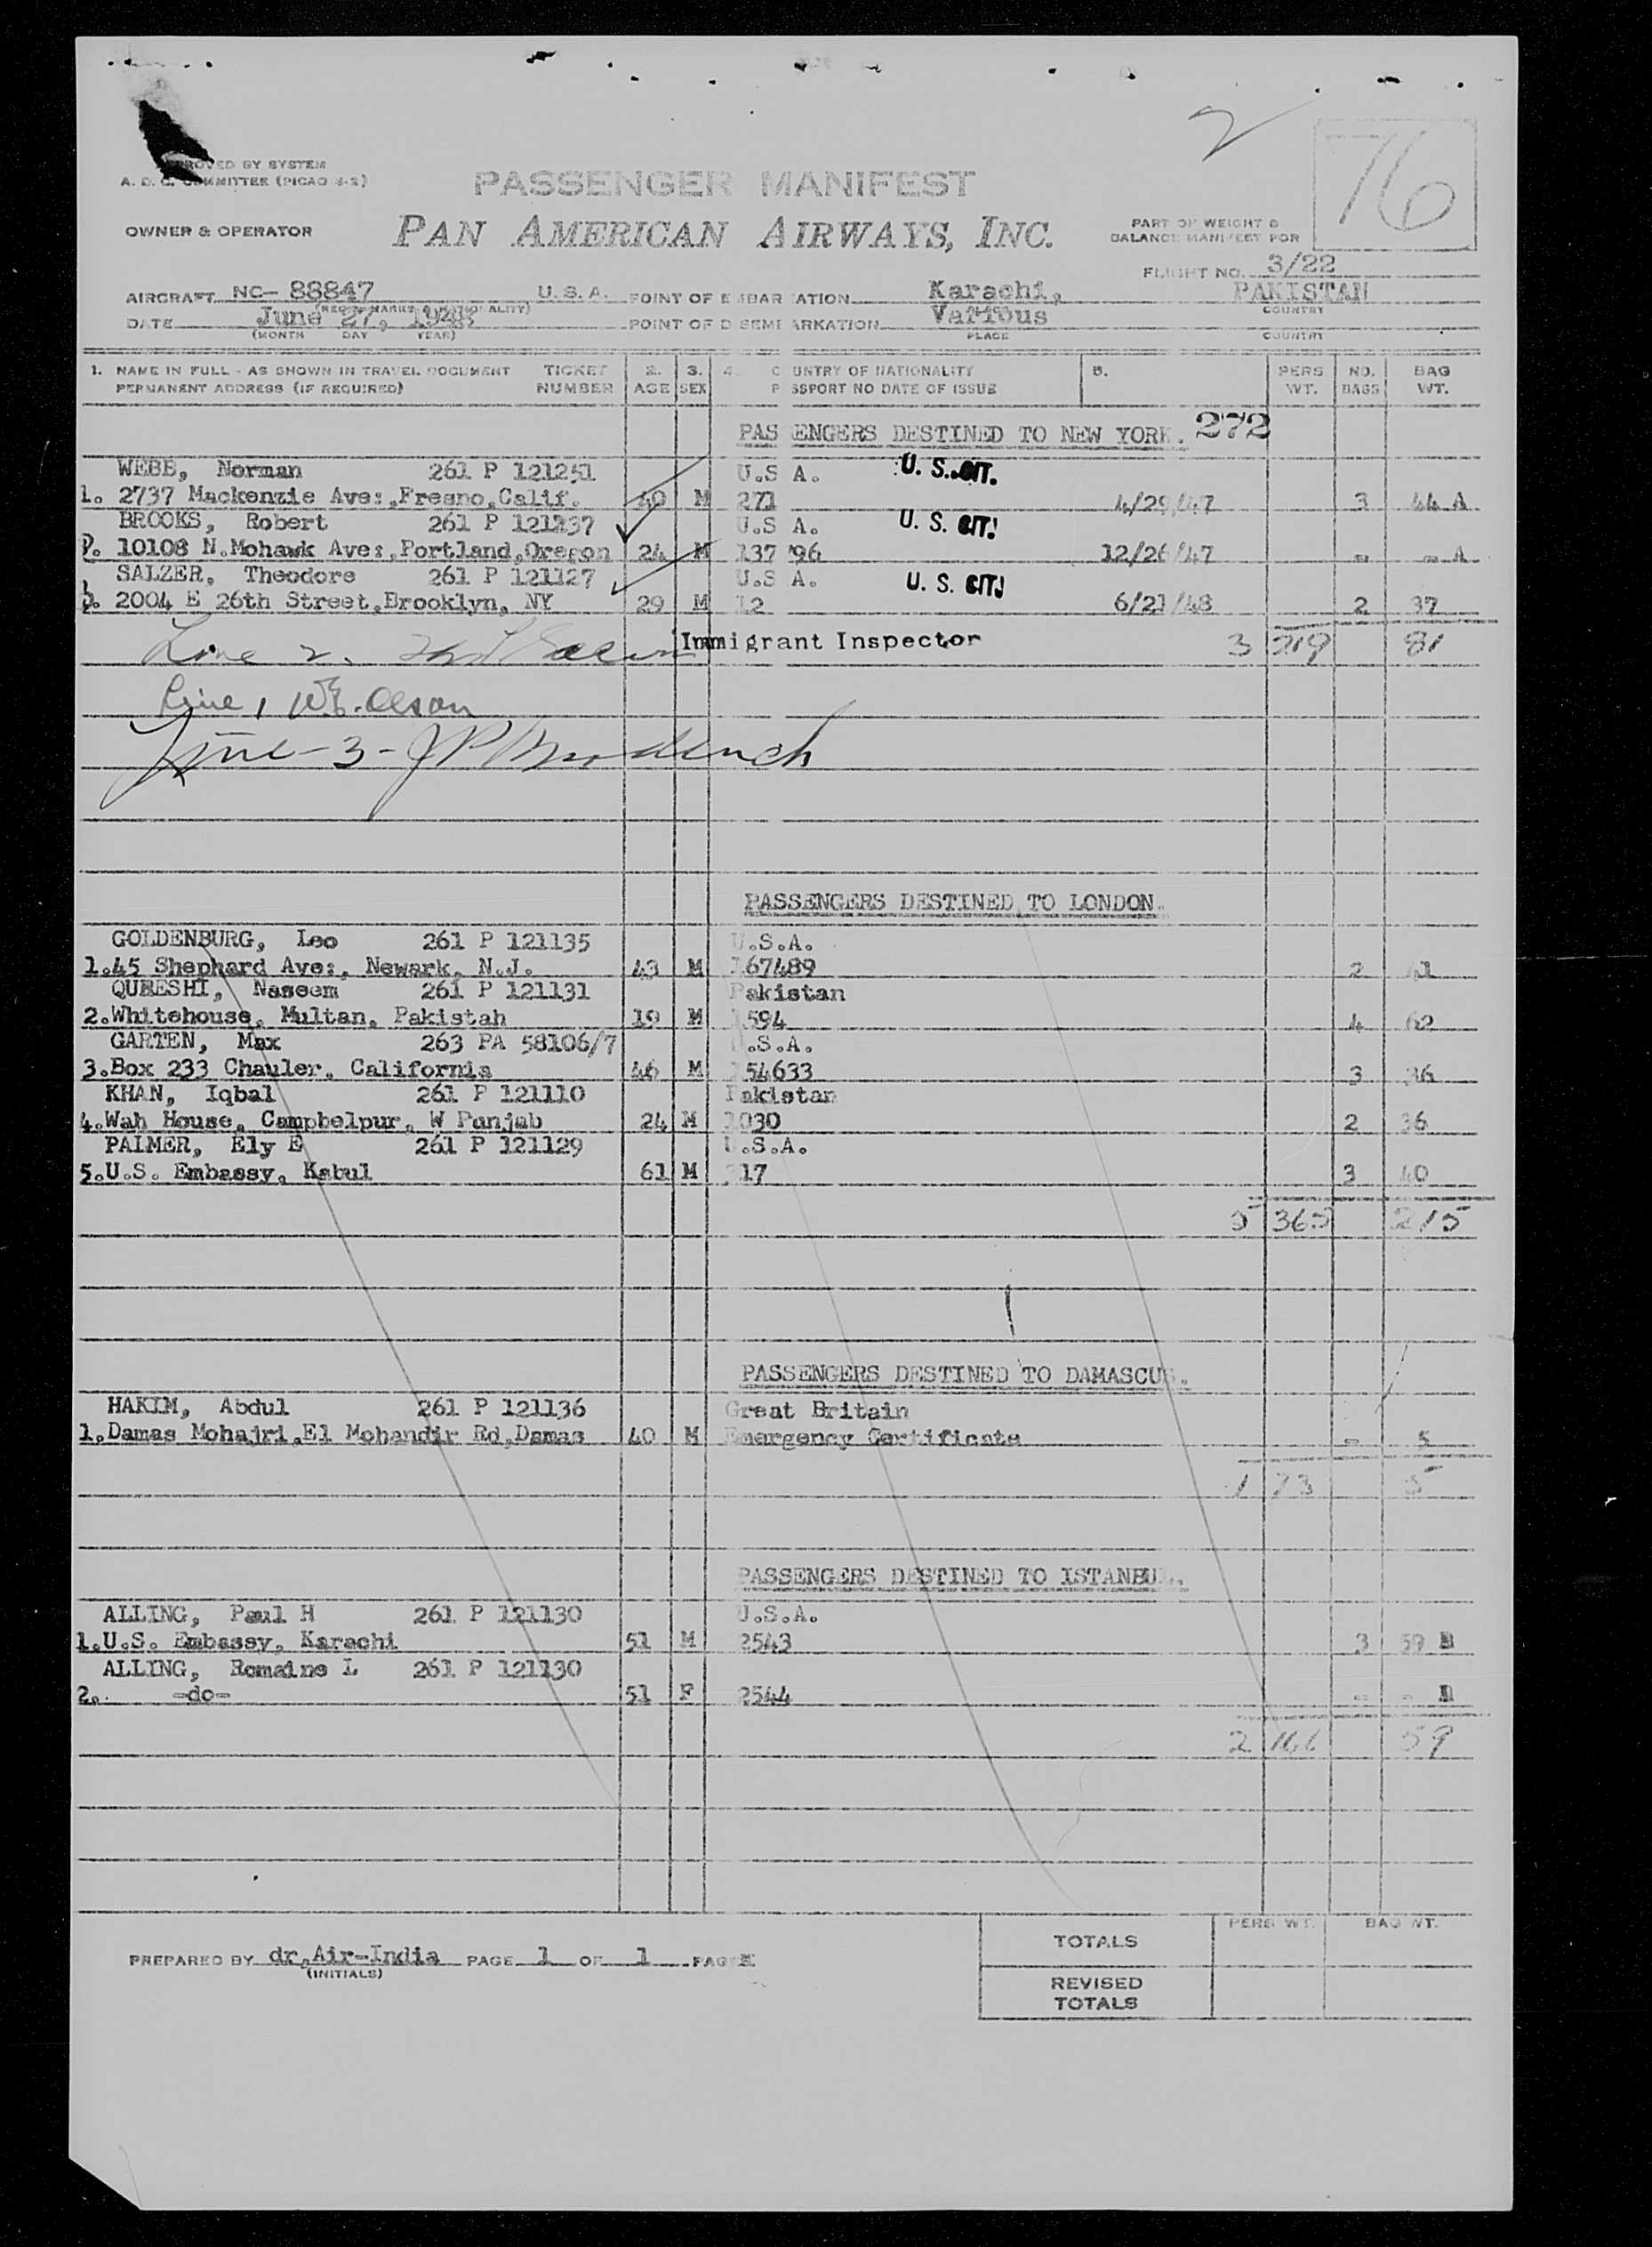 2
76
APPROVED BY SYSTEM
A. D. C. COMMITTEE (PICAO 3-2)
PASSENGER MANIFEST
OWNER & OPERATOR PAN AMERICAN AIRWAYS, INC.
PART OF WEIGHT &
BALANCE MANIFEST FOR
FLIGHT NO. 3/22
AIRCRAFT NC- 88847 U. S. A. POINT OF EMBARKATION Karachi, PAKISTAN
DATE June 27, 1948 POINT OF DISEMBARKATION Various
(MONTH DAY YEAR) PLACE COUNTRY
1. NAME IN FULL - AS SHOWN IN TRAVEL DOCUMENT TICKET 2. 3. 4. COUNTRY OF NATIONALITY 5. PERS NO. BAG
PERMANENT ADDRESS (IF REQUIRED) NUMBER AGE SEX PASSPORT NO DATE OF ISSUE WT. BAGS WT.
PASSENGERS DESTINED TO NEW YORK. 272
WEBB, Norman 261 P 121251 U.S.A. U. S. CIT.
1. 2737 Mackenzie Ave:,Fresno,Calif. 40 M 271 4/29/47 3 44 A
BROOKS, Robert 261 P 121137 U.S.A. U. S. CIT.
2. 10108 N.Mohawk Ave:,Portland,Oregon 24 M 137 96 12/26/47 - - A
SALZER, Theodore 261 P 121127 U.S.A. U. S. CIT.
3. 2004 E 26th Street,Brooklyn, NY 29 M 12 6/21/48 2 37
Line 2. Immigrant Inspector 3 81
Line 1 Olson
Line - 3 - JP
PASSENGERS DESTINED TO LONDON.
GOLDENBURG, Leo 261 P 121135 U.S.A.
1.45 Shephard Ave:, Newark, N.J. 43 M 167489 2 41
QURESHI, Naseem 261 P 121131 Pakistan
2.Whitehouse, Multan, Pakistan 19 M 1594 4 62
GARTEN, Max 263 PA 58106/7 U.S.A.
3.Box 233 Chauler, California 46 M 154633 3 36
KHAN, Iqbal 261 P 121110 Pakistan
4.Wah House, Campbelpur, W Punjab 24 M 1030 2 36
PALMER, Ely E 261 P 121129 U.S.A.
5.U.S. Embassy, Kabul 61 M 317 3 40
5 365 215
PASSENGERS DESTINED TO DAMASCUS.
HAKIM, Abdul 261 P 121136 Great Britain
1.Damas Mohajri,El Mohandir Rd,Damas 40 M Emergency Certificate - 5
1 73 5
PASSENGERS DESTINED TO ISTANBUL.
ALLING, Paul H 261 P 121130 U.S.A.
1.U.S. Embassy, Karachi 51 M 2543 3 59 B
ALLING, Romaine L 261 P 121130
2. -do- 51 F 2544 - -
2 166 59
PERS WT. BAG WT.
TOTALS
PREPARED BY dr,Air-India PAGE 1 OF 1 PAGES
(INITIALS)
REVISED
TOTALS